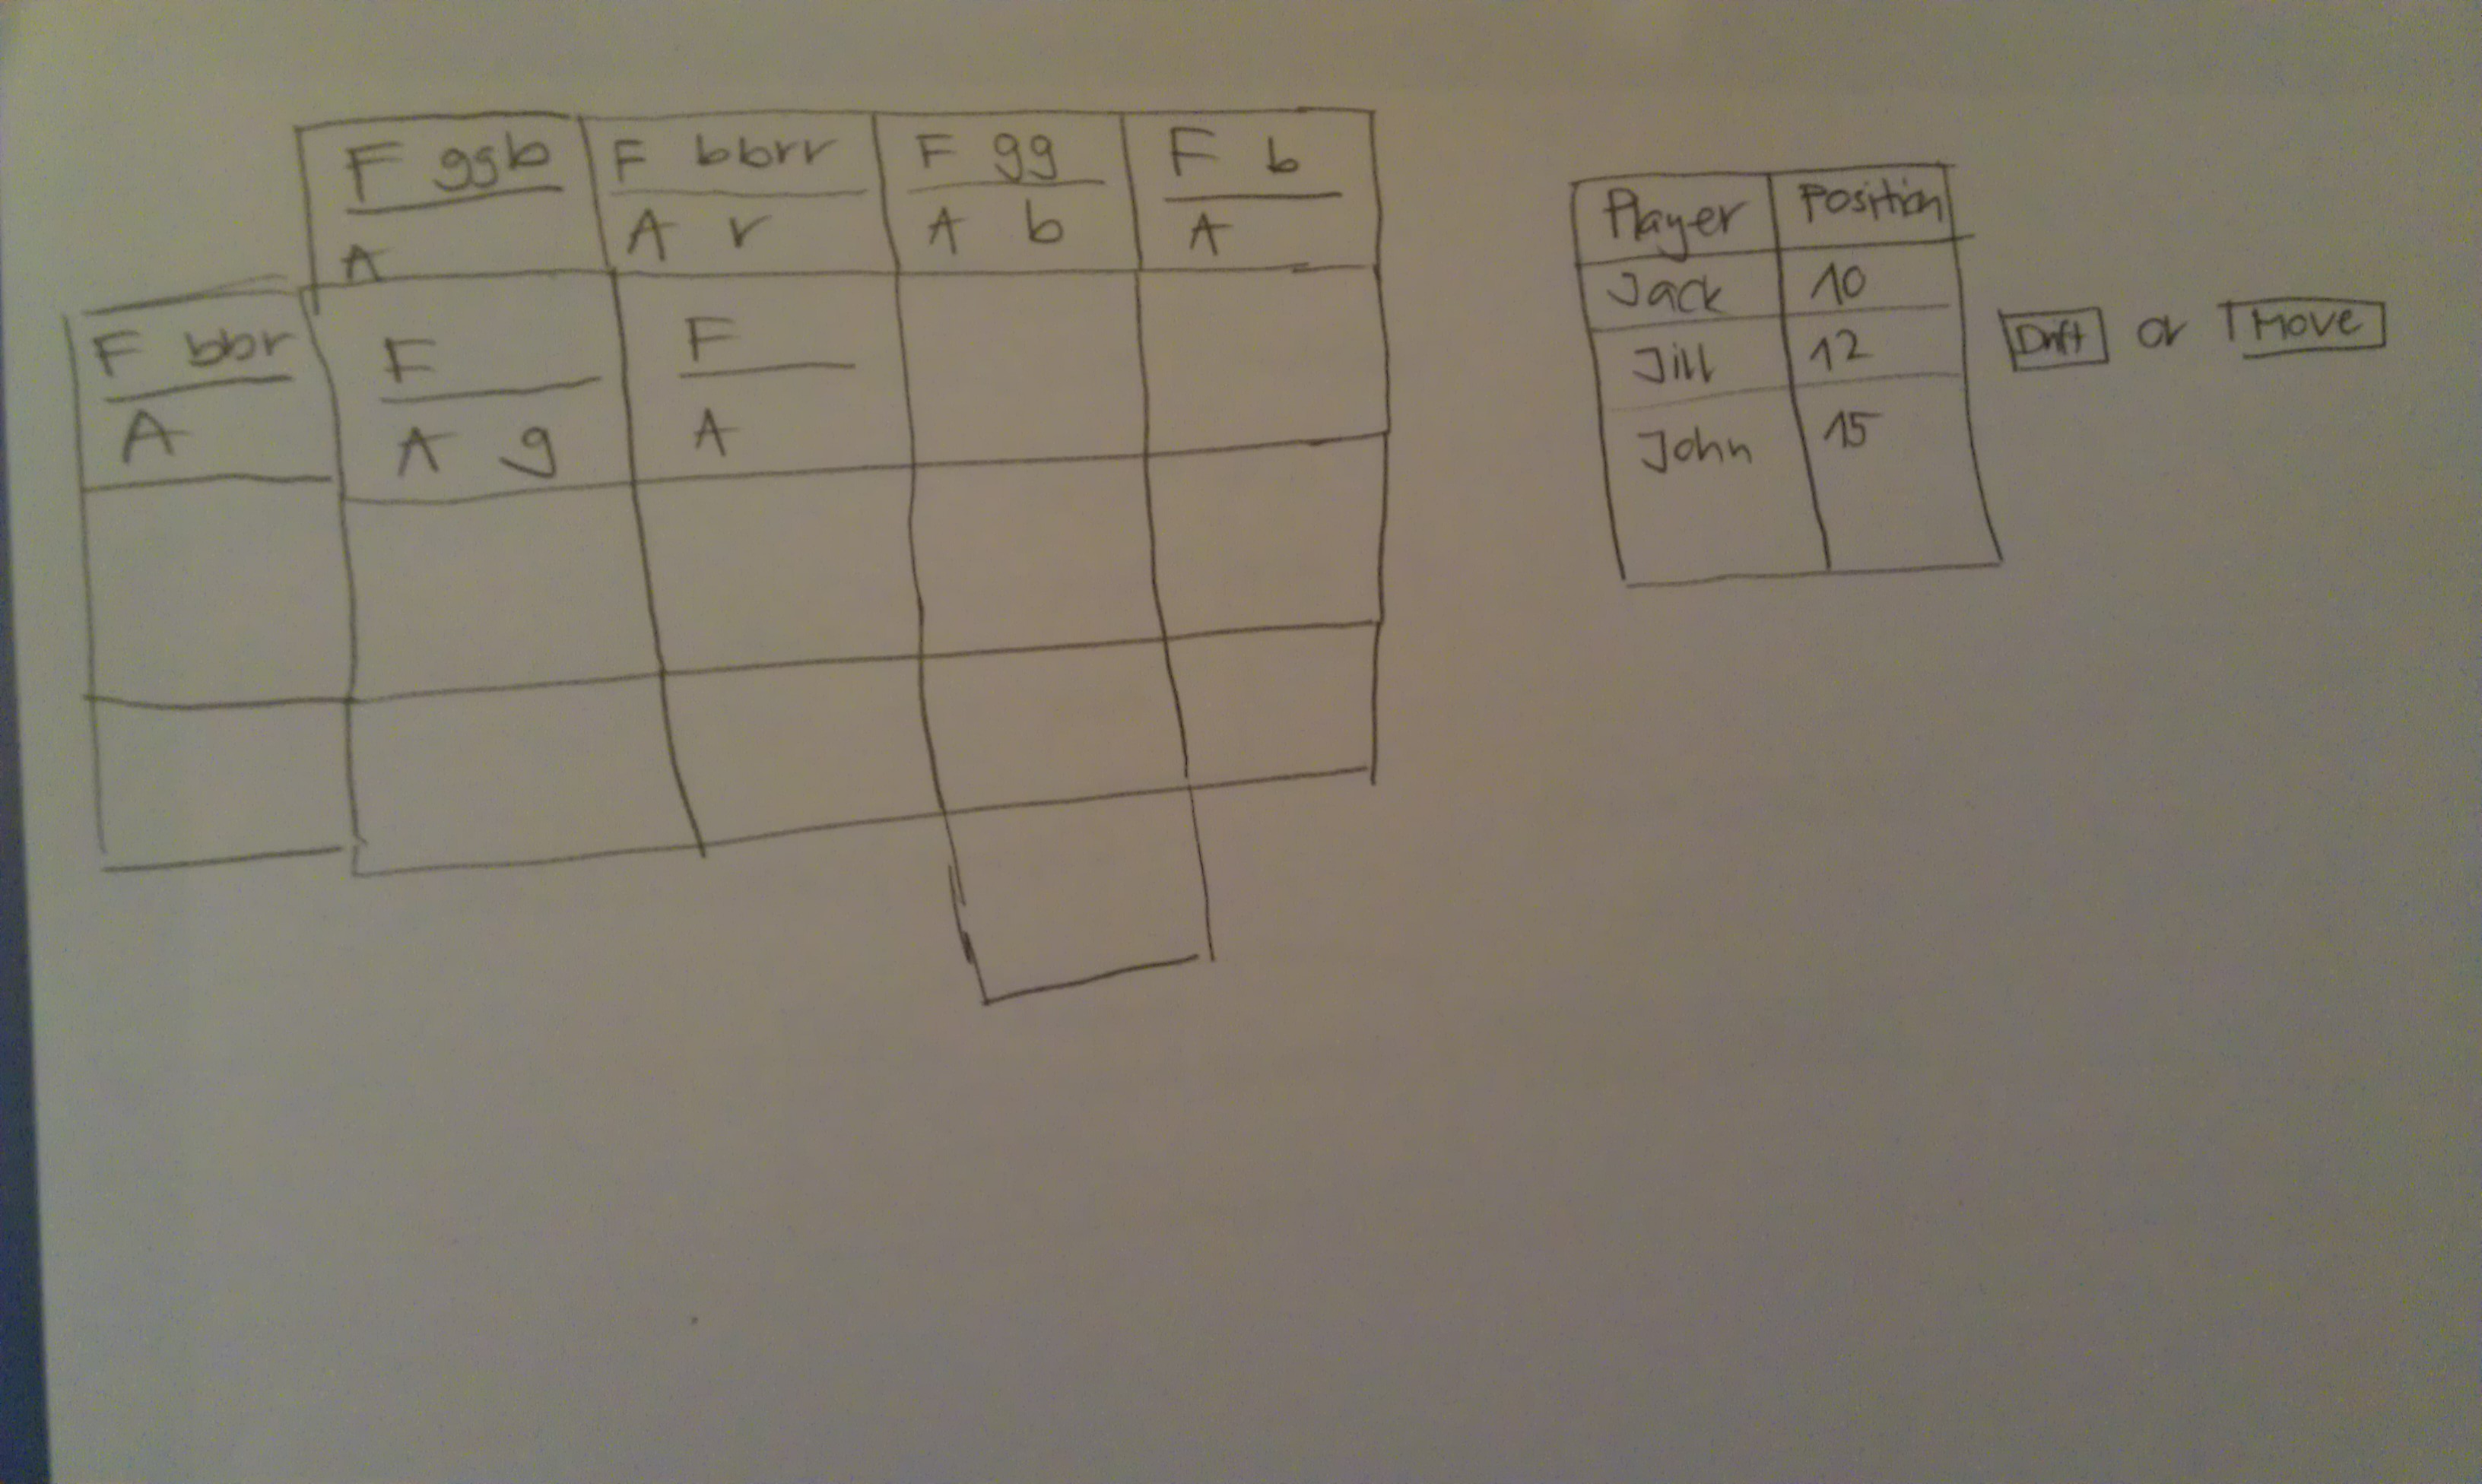 F ggb
A
F bbrr
A r
F gg
A b
F b
A
F bbr
A
F
A g
F
A
Player Position
Jack 10
Jill 12
John 15
Drift or Move